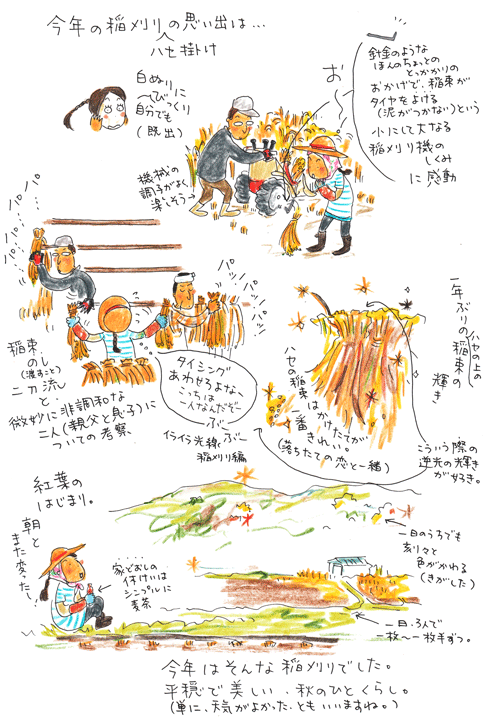 今年の稲刈りの思い出は…
ハセ掛け
白ぬりに
びっくり
自分でも
(既出)
お〜
針金のような
ほんのちょっとの
とっかかりの
おかげで、稲束が
タイヤをよける
(泥がつかない)という
小にして大なる
稲刈り機の
しくみ
に感動
機械の
調子がよく
楽しそう→
パ…パ…パ…パ…
パッパッパッ
稲束
のし
(渡すこと)
二刀流
と、
微妙に非調和な
二人(親父と息子)に
ついての考察
タイミング
あわせろよな〜
こっちは
一人なんだぞー
ぶー
イライラ光線ぶー
稲刈り編
一年ぶりの
ハセの上の
稲束の
輝き
ハセの稲束は
かけたてが
一番
きれい。
(落ちたての恋と一緒)
こういう際の
逆光の輝き
が好き。
紅葉の
はじまり。
朝と
また変った!
家どおしの
休けいは
シンプルに
麦茶
一日のうちでも
刻々と
色がかわる
(きがした)
一日、3人で
一枚〜一枚半ずつ。
今年はそんな稲刈りでした。
平穏で美しい、秋のひとくらし。
(単に、天気がよかったともいいますね。)